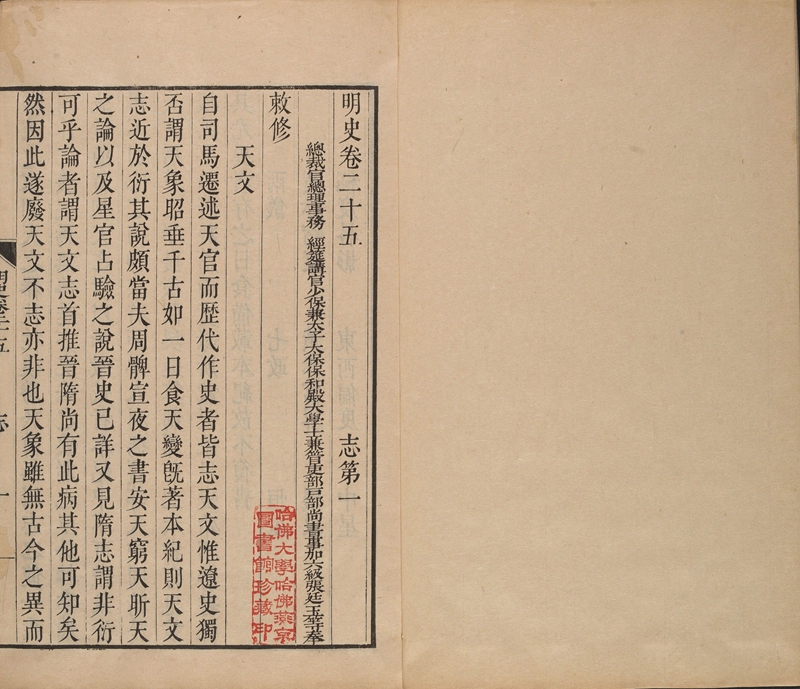 明史卷二十五 志第一
總裁官總理事務 經筵講官少保兼太子太保保和殿大學士兼管吏部戶部尚書事加六級張廷玉等奉
敕修
天文
自司馬遷述天官而歷代作史者皆志天文惟遼史獨
否謂天象昭垂千古如一日食天變既著本紀則天文
志近於衍其說頗當夫周髀宣夜之書安天窮天昕天
之論以及星官占驗之說晉史已詳又見隋志謂非衍
可乎論者謂天文志首推晉隋尚有此病其他可知矣
然因此遂廢天文不志亦非也天象雖無古今之異而
明史卷二十五 志 一
哈佛大學哈佛燕京
圖書館珍藏印